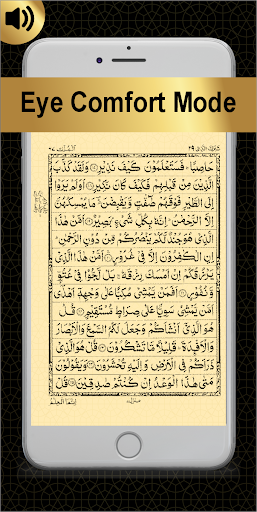 Eye Comfort Mode
تَبٰرَكَ الَّذِیْ ٢٩ اَلْمُلْك ٦٧
حَاصِبًا ؕ فَسَتَعْلَمُوْنَ كَيْفَ نَذِيْرِ ۝ وَلَقَدْ كَذَّبَ
الَّذِيْنَ مِنْ قَبْلِهِمْ فَكَيْفَ كَانَ نَكِيْرِ ۝ اَوَلَمْ يَرَوْا
اِلَى الطَّيْرِ فَوْقَهُمْ صٰٓفّٰتٍ وَّيَقْبِضْنَ ؕ مَا يُمْسِكُهُنَّ
اِلَّا الرَّحْمٰنُ ؕ اِنَّهٗ بِكُلِّ شَيْءٍۭ بَصِيْرٌ ۝ اَمَّنْ هٰذَا
الَّذِيْ هُوَ جُنْدٌ لَّكُمْ يَنْصُرُكُمْ مِّنْ دُوْنِ الرَّحْمٰنِ ؕ
اِنِ الْكٰفِرُوْنَ اِلَّا فِيْ غُرُوْرٍ ۝ اَمَّنْ هٰذَا الَّذِيْ
يَرْزُقُكُمْ اِنْ اَمْسَكَ رِزْقَهٗ ۚ بَلْ لَّجُّوْا فِيْ عُتُوٍّ
وَّنُفُوْرٍ ۝ اَفَمَنْ يَّمْشِيْ مُكِبًّا عَلٰى وَجْهِهٖٓ اَهْدٰٓى
اَمَّنْ يَّمْشِيْ سَوِيًّا عَلٰى صِرَاطٍ مُّسْتَقِيْمٍ ۝ قُلْ
هُوَ الَّذِيْٓ اَنْشَاَكُمْ وَجَعَلَ لَكُمُ السَّمْعَ وَالْاَبْصَارَ
وَالْاَفْـِٕدَةَ ؕ قَلِيْلًا مَّا تَشْكُرُوْنَ ۝ قُلْ هُوَ الَّذِيْ
ذَرَاَكُمْ فِي الْاَرْضِ وَاِلَيْهِ تُحْشَرُوْنَ ۝ وَيَقُوْلُوْنَ
مَتٰى هٰذَا الْوَعْدُ اِنْ كُنْتُمْ صٰدِقِيْنَ ۝ قُلْ
اِنَّمَا الْعِلْمُ